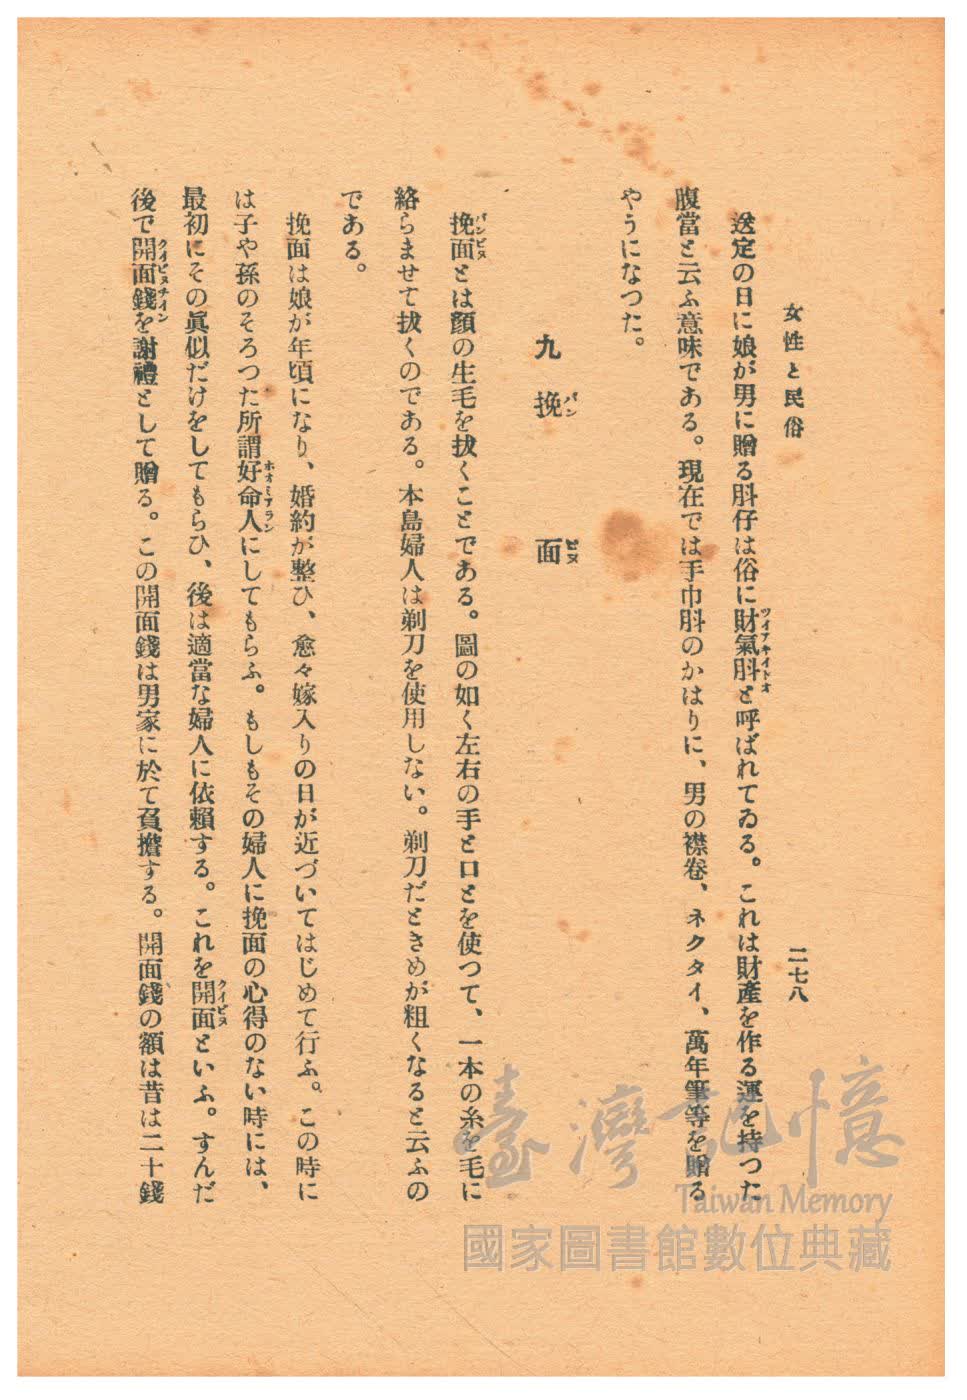 女性と民俗
二七八
送定の日に娘が男に贈る肚仔は俗に財氣肚と呼ばれてゐる。これは財產を作る運を持つた
ツイアキイトオ
腹當と云ふ意味である。現在では手巾肚のかはりに、男の襟卷、ネクタイ、萬年筆等を贈る
やうになつた。
九 挽面
バンビヌ
挽面とは顏の生毛を拔くことである。圖の如く左右の手と口とを使つて、一本の糸を毛に
バンビヌ
絡らませて拔くのである。本島婦人は剃刀を使用しない。剃刀だときめが粗くなると云ふの
である。
挽面は娘が年頃になり、婚約が整ひ、愈々嫁入りの日が近づいてはじめて行ふ。この時に
は子や孫のそろつた所謂好命人にしてもらふ。もしもその婦人に挽面の心得のない時には、
ホオミアラン
最初にその眞似だけをしてもらひ、後は適當な婦人に依賴する。これを開面といふ。すんだ
クイビヌ
後で開面錢を謝禮として贈る。この開面錢は男家に於て負擔する。開面錢の額は昔は二十錢
クイビヌチイン
臺灣記憶
Taiwan Memory
國家圖書館數位典藏